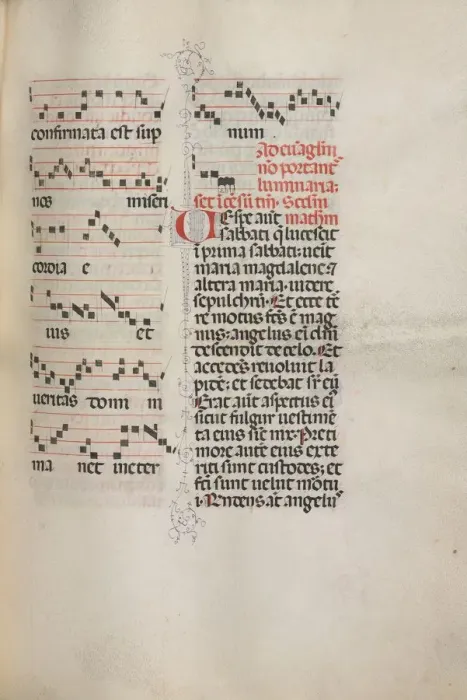 confirmata est sup
nos miseri
cordia e
ius et
ueritas domi ni
ma net ineter
num
Ad euãgliũ
nõ portant̃
luminaria:
set ĩcẽsũ tñ. Scdm̃
Uespe aut̃ mathm̃
sabbati q̃ lucescit
ĩ prima sabbati: ueit̃
maria magdalene: ⁊
altera maria: uidere
sepulchrũ. Et ecce tẽ
re motus fc̃s ẽ mag
nus: angelus eĩ dñi
descendit de celo. Et
accedẽs reuoluit la
pidẽ: et sedebat sr̃ eũ
Erat aũt aspectus ei᷒
sicut fulgur uestimẽ
ta eius sic̃ nix. Preti
more autẽ eius exte
riti sunt custodes; et
fc̃i sunt uelut mõtu
i. Rñdens at̃ angelu᷒